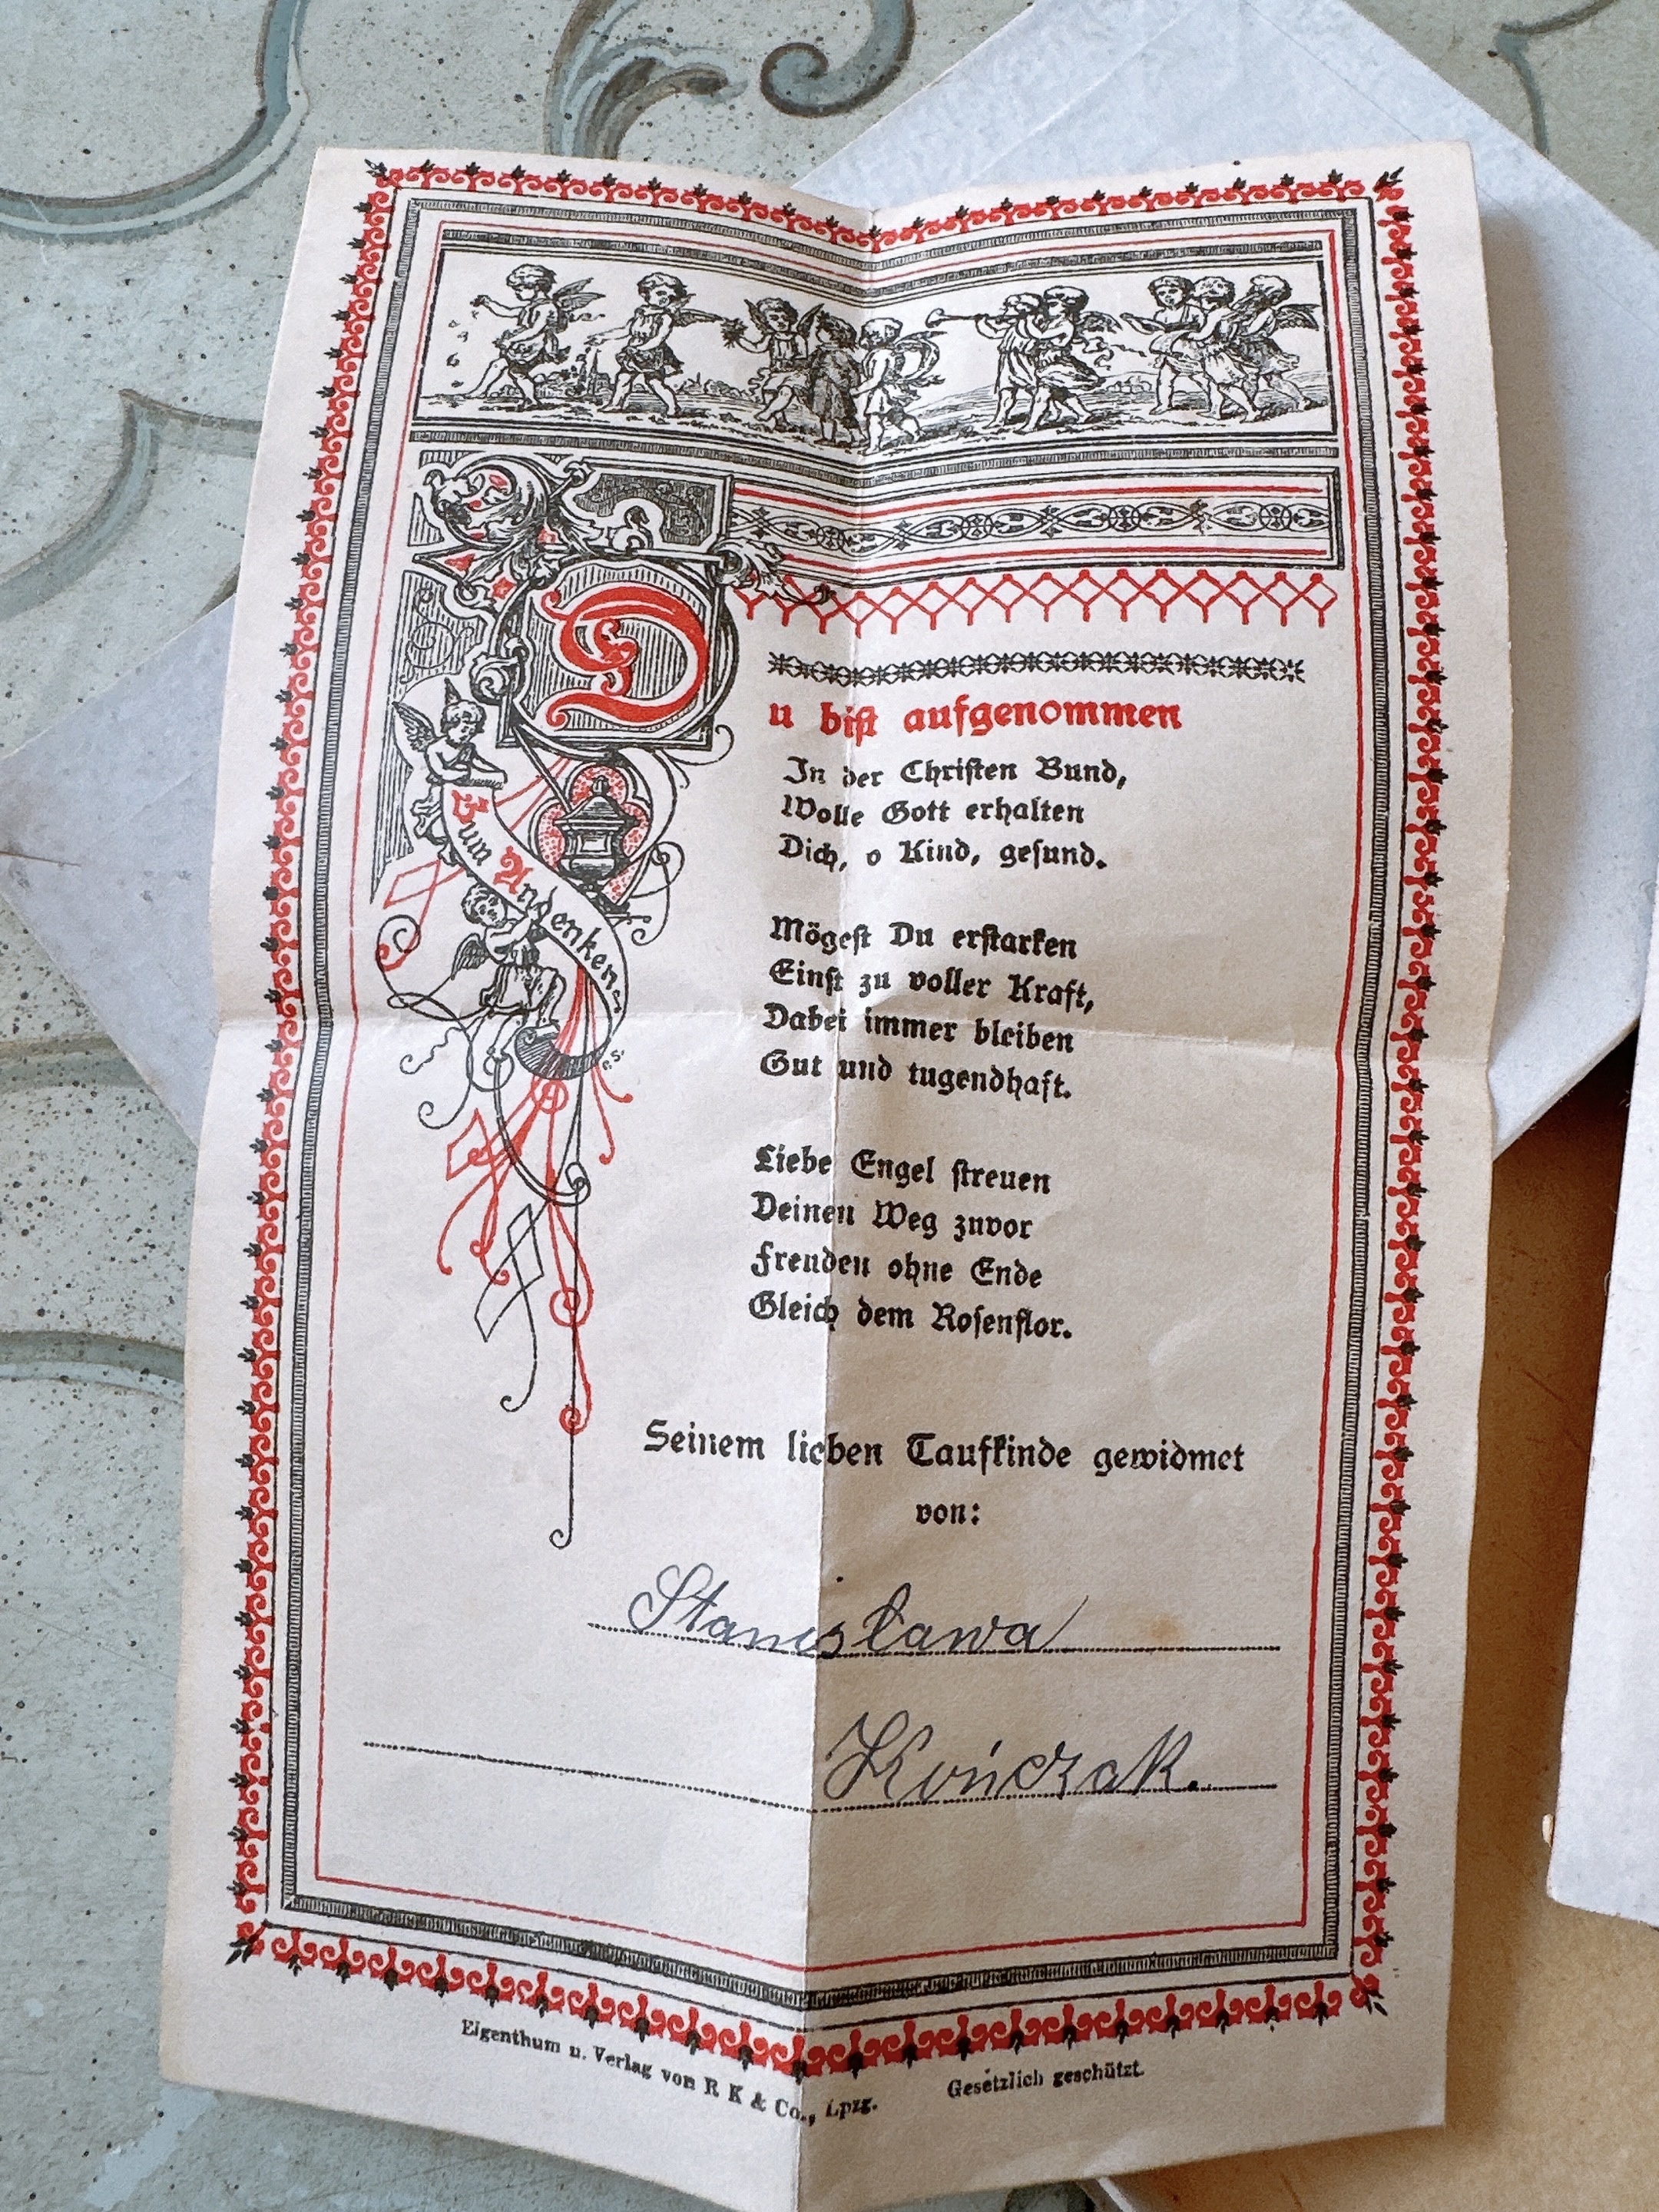 Du bist aufgenommen
In der Christen Bund,
Wolle Gott erhalten
Dich, o Kind, gesund.
Zum Andenken
Mögest Du erstarken
Einst zu voller Kraft,
Dabei immer bleiben
Gut und tugendhaft.
Liebe Engel streuen
Deinen Weg zuvor
Freuden ohne Ende
Gleich dem Rosenflor.
Seinem lieben Taufkinde gewidmet
von:
Stanisława
Kończak.
Eigenthum u. Verlag von R K & Co., Lpzg.
Gesetzlich geschützt.